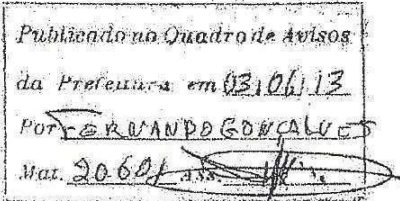 Publicado no Quadro de Avisos
da Prefeitura em 03/06/13
Por FERNANDO GONÇALVES
Mat. 20601 Ass.